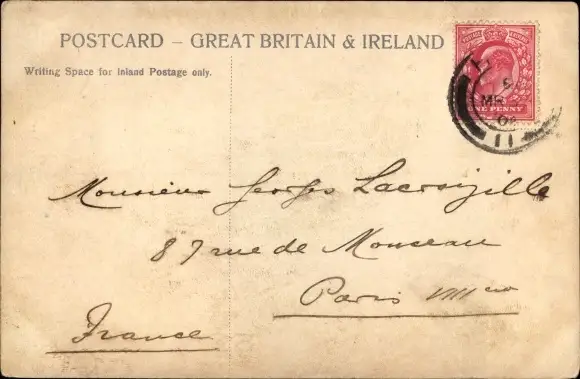 POSTCARD – GREAT BRITAIN & IRELAND
Writing Space for Inland Postage only.
POSTAGE
ONE PENNY
MR
11
Monsieur Georges
87 rue de Monceau
Paris VIII
France